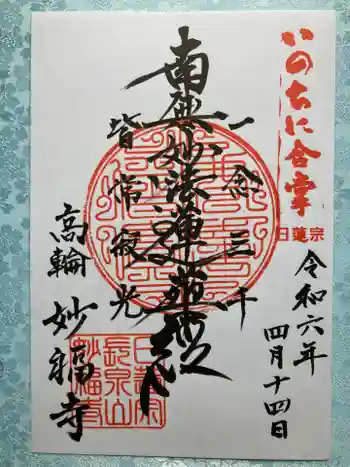 いのちに合掌
日蓮宗
令和六年
四月十四日
一念三千
南無妙法蓮華経
皆常寂光
高輪 妙福寺
日蓮宗
長泉山
妙福寺